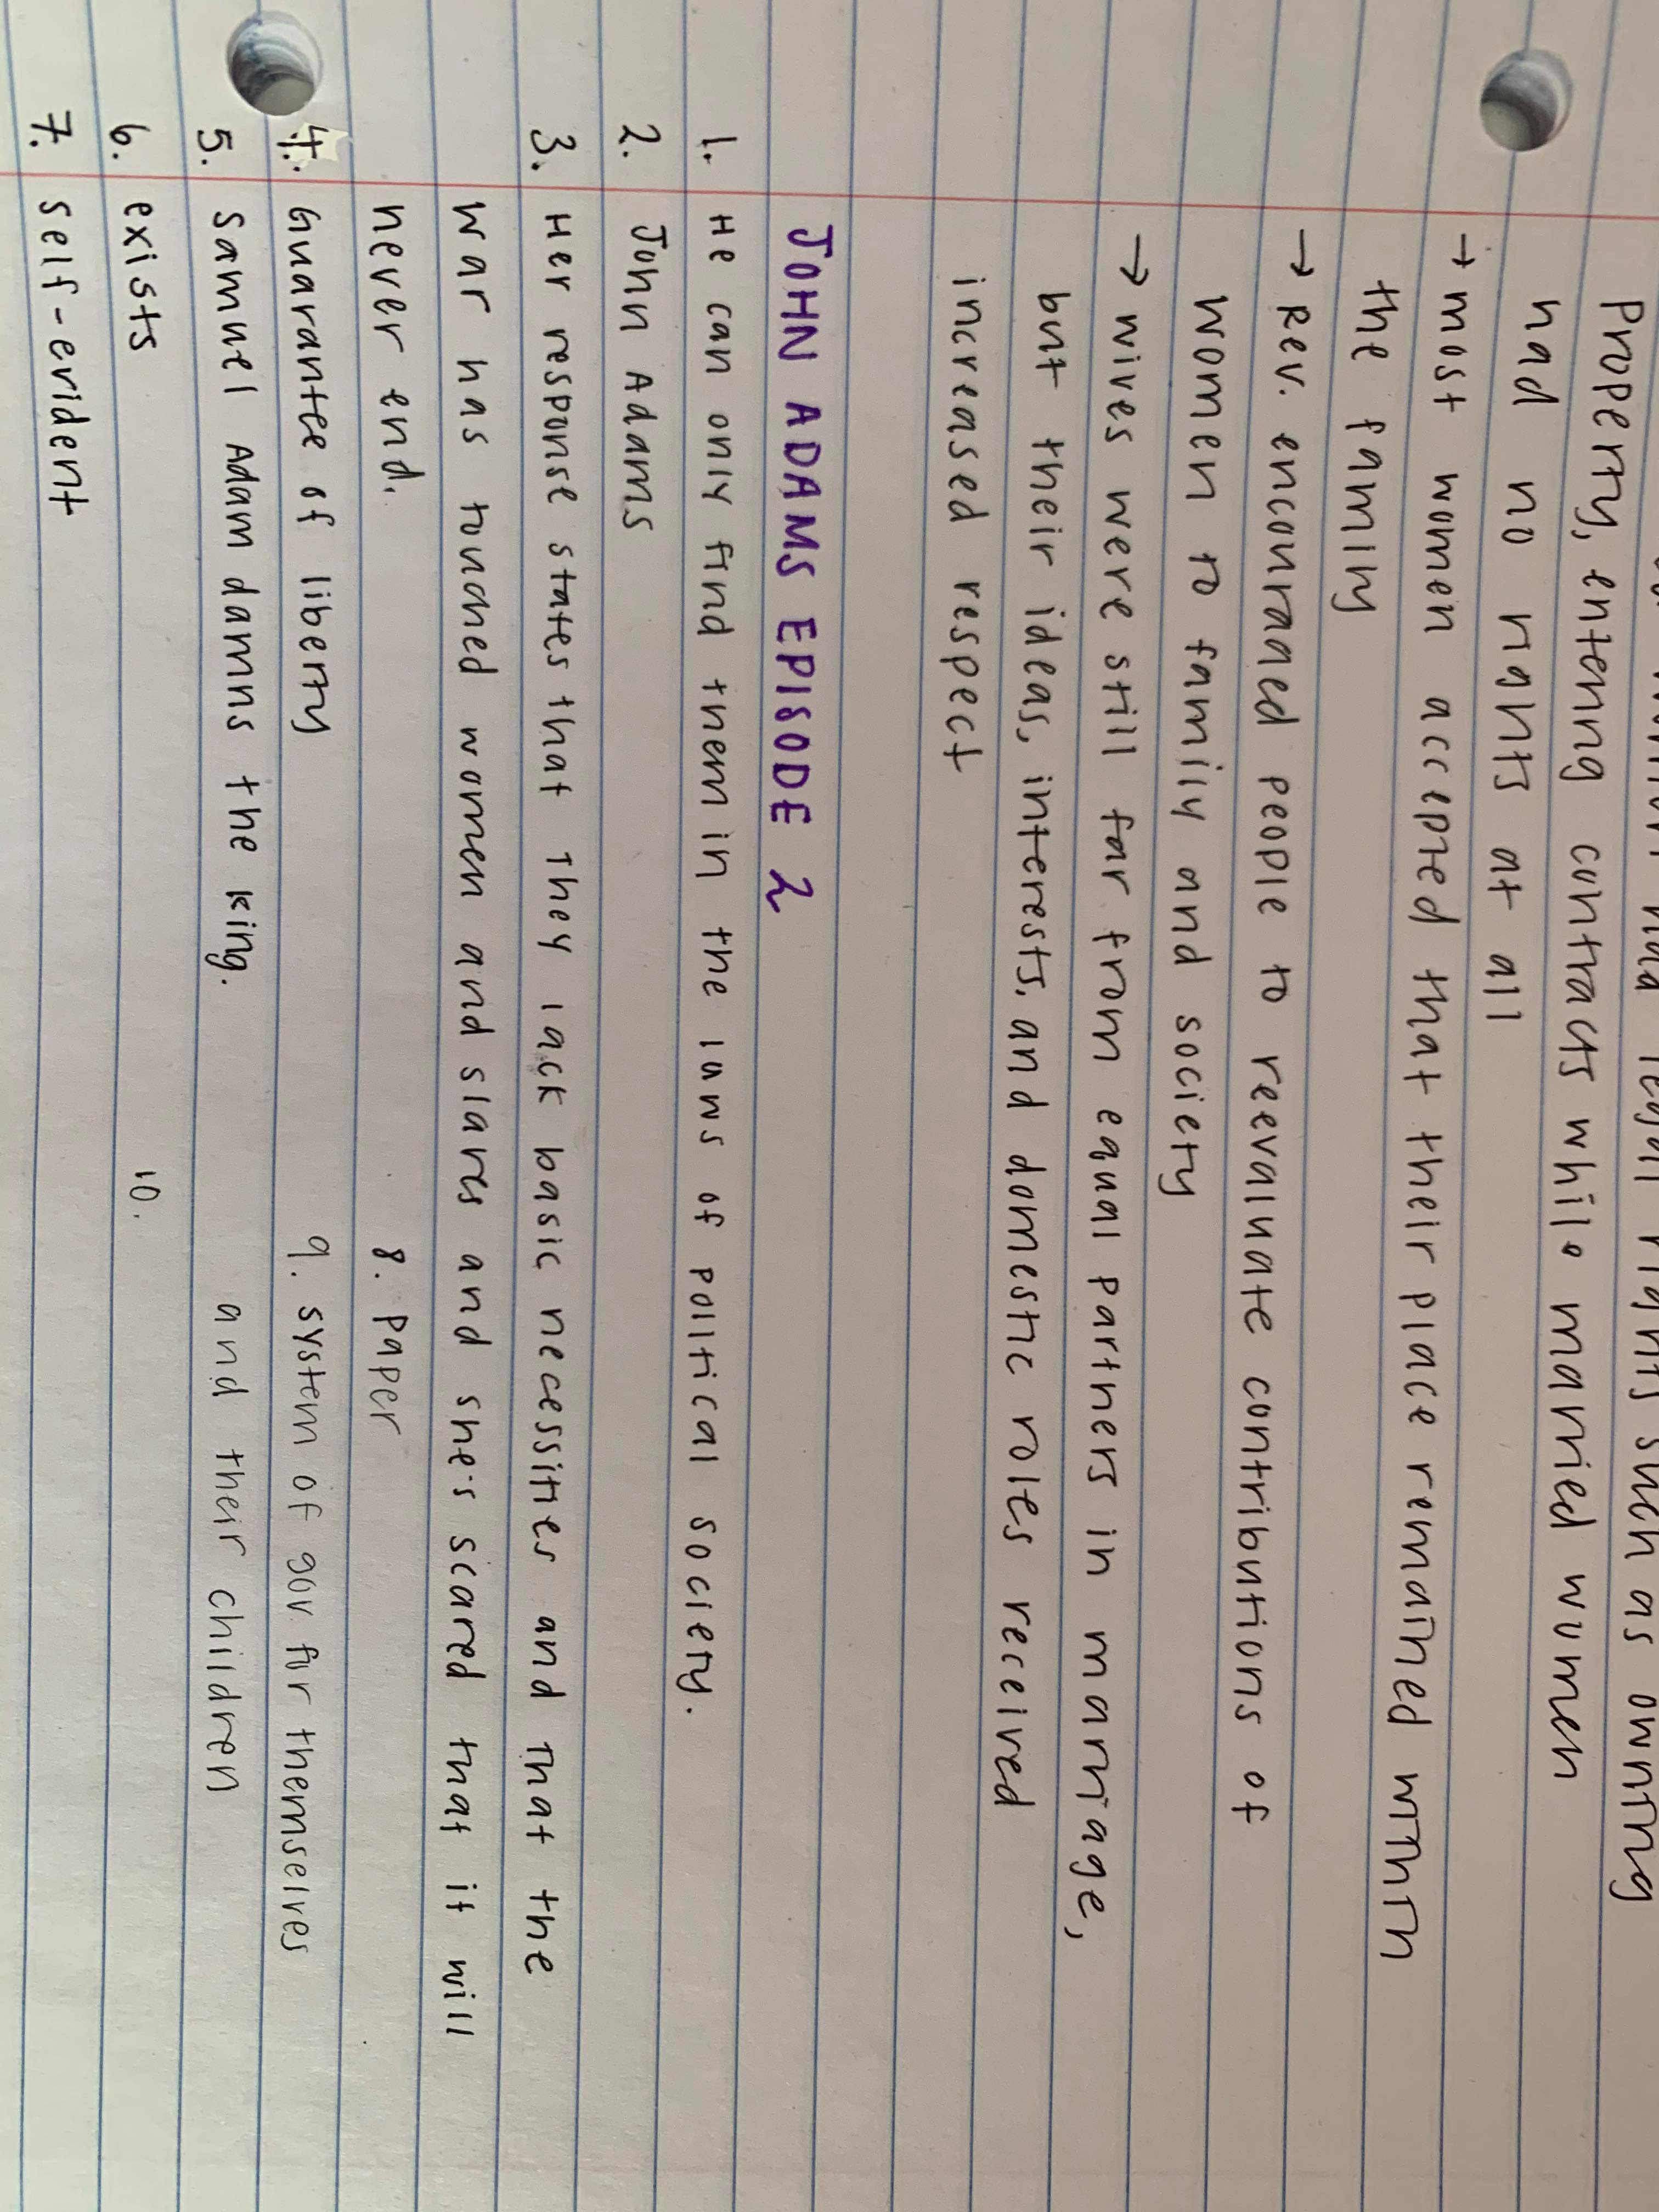 had legal rights such as owning
property, entering contracts while married women
had no rights at all
→ most women accepted that their place remained within
the family
→ Rev. encouraged people to reevaluate contributions of
women to family and society
→ wives were still far from equal partners in marriage,
but their ideas, interests, and domestic roles received
increased respect
JOHN ADAMS EPISODE 2
1. He can only find them in the laws of political society.
2. John Adams
3. Her response states that they lack basic necessities and that the
war has touched women and slaves and she's scared that it will
never end.
4. Guarantee of liberty
5. Samuel Adam damns the king.
6. exists
7. self-evident
8. Paper
9. system of gov for themselves
and their children
10.